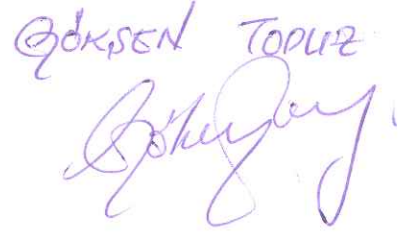 GÖKŞEN TOPUZ